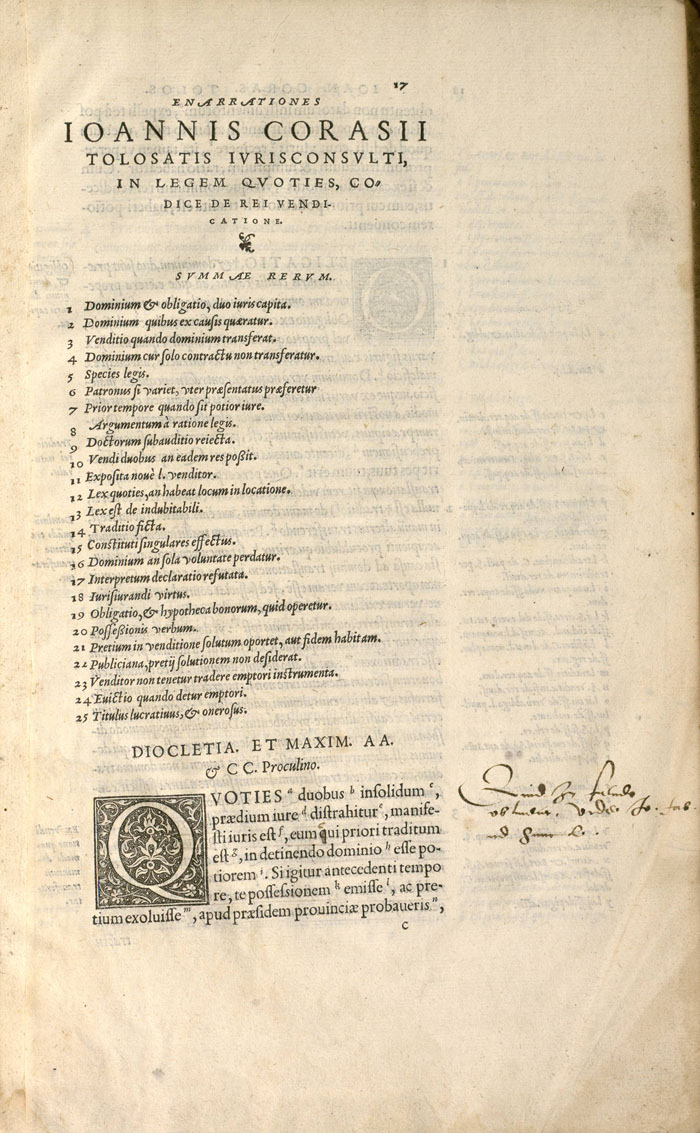 17
ENARRATIONES
IOANNIS CORASII
TOLOSATIS IVRISCONSVLTI,
IN LEGEM QVOTIES, CO-
DICE DE REI VENDI-
CATIONE.
SVMMAE RERVM.
1 Dominium & obligatio, duo iuris capita.
2 Dominium quibus ex causis quæratur.
3 Venditio quando dominium transferat.
4 Dominium cur solo contractu non transferatur.
5 Species legis.
6 Patronus si variet, vter præsentatus præferetur
7 Prior tempore quando sit potior iure.
8 Argumentum à ratione legis.
9 Doctorum subauditio reiecta.
10 Vendi duobus an eadem res poßit.
11 Exposita nouè l. venditor.
12 Lex quoties, an habeat locum in locatione.
13 Lex est de indubitabili.
14 Traditio ficta.
15 Constituti singulares effectus.
16 Dominium an sola voluntate perdatur.
17 Interpretum declaratio refutata.
18 Iurisiurandi virtus.
19 Obligatio, & hypotheca bonorum, quid operetur.
20 Posseßionis verbum.
21 Pretium in venditione solutum oportet, aut fidem habitam.
22 Publiciana, pretij solutionem non desiderat.
23 Venditor non tenetur tradere emptori instrumenta.
24 Euictio quando detur emptori.
25 Titulus lucratiuus, & onerosus.
DIOCLETIA. ET MAXIM. AA.
& CC. Proculino.
QVOTIES a duobus b insolidum c,
prædium iure d distrahitur e, manife-
sti iuris est f, eum qui priori traditum
est g, in detinendo dominio h esse po-
tiorem i. Si igitur antecedenti tempo
re, te possessionem k emisse l, ac pre-
tium exoluisse m, apud præsidem prouinciæ probaueris n,
c